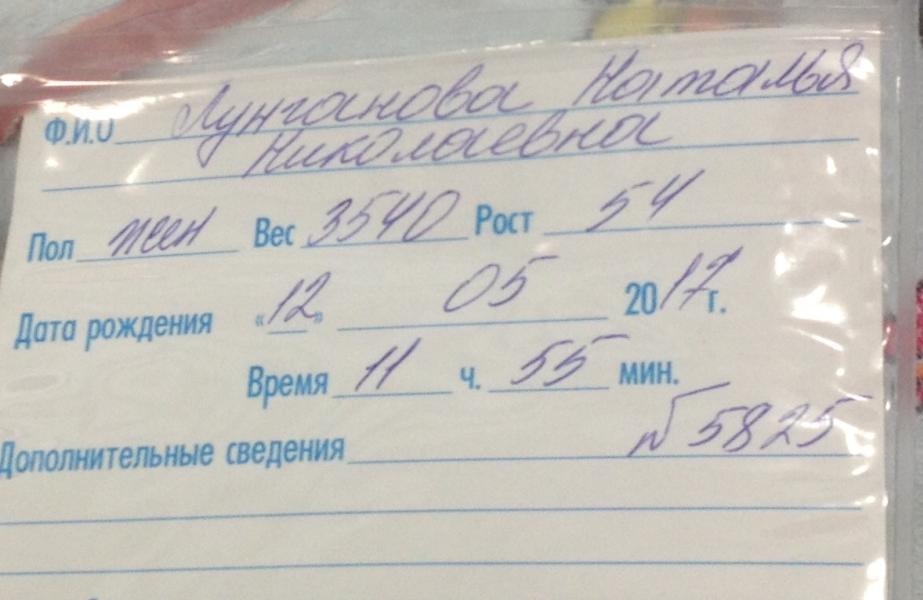 Ф.И.О Лунганова Наталья
Николаевна
Пол жен Вес 3540 Рост 54
Дата рождения «12» 05 2017г.
Время 11 ч. 55 мин.
Дополнительные сведения № 5825